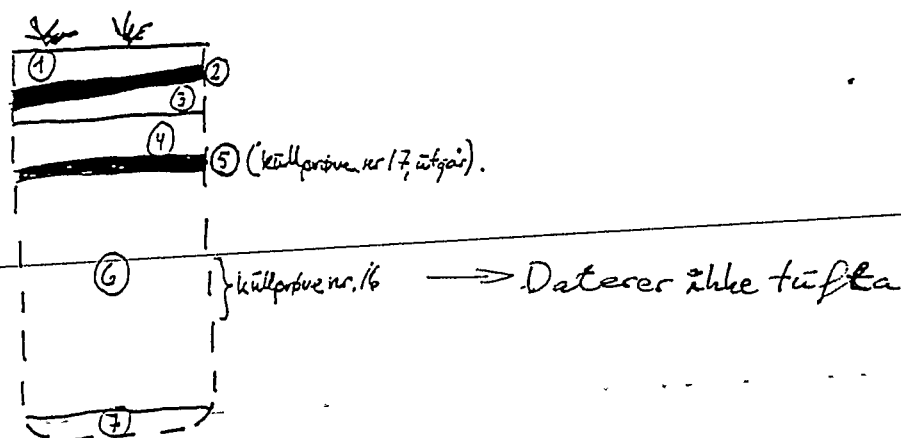 1
2
3
4
5 (kullprøve nr 17, utgår).
6
kullprøve nr. 16 → Daterer ikke tufta
7